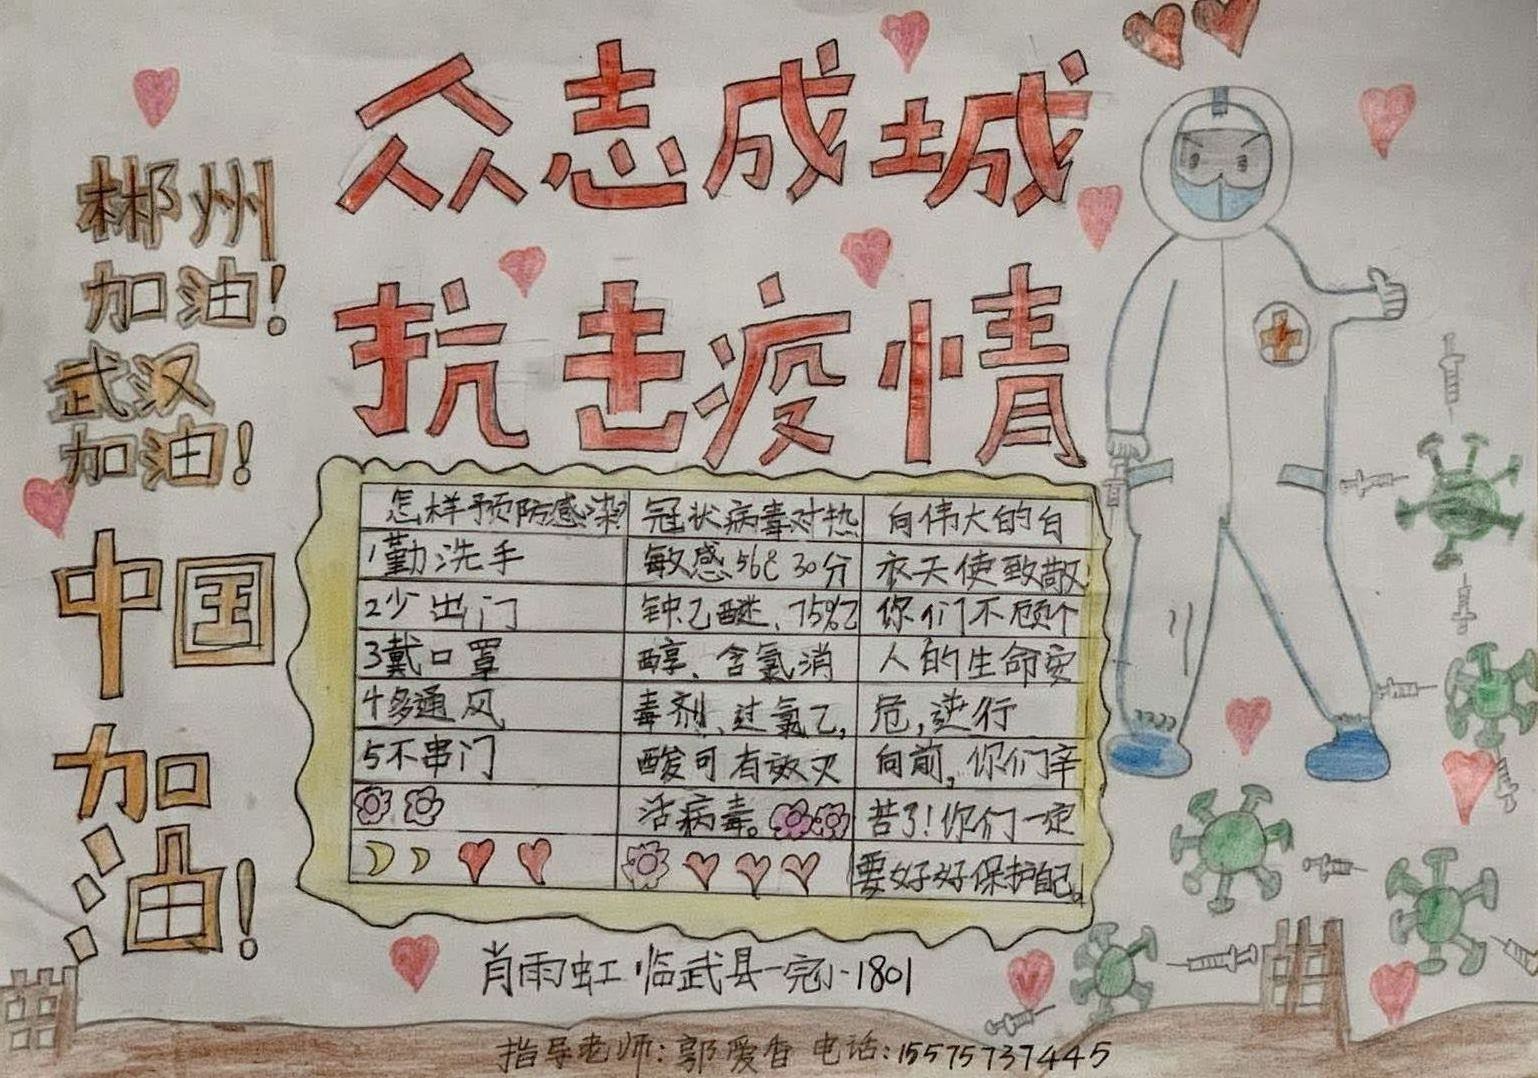 众志成城
抗击疫情
郴州
加油!
武汉
加油!
中国
加油!
怎样预防感染?
1勤洗手
2少出门
3戴口罩
4多通风
5不串门
冠状病毒对热
敏感56℃30分
钟乙醚、75%乙
醇、含氯消
毒剂、过氧乙,
酸可有效灭
活病毒。
向伟大的白
衣天使致敬
你们不顾个
人的生命安
危,逆行
向前,你们辛
苦了!你们一定
要好好保护自己。
肖雨虹 临武县一完小1801
指导老师:郭爱香 电话:15575737445